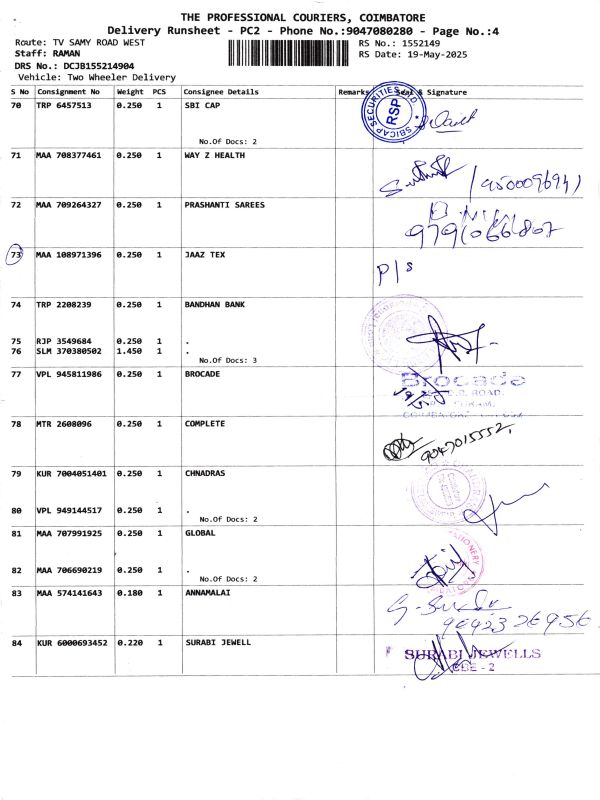 THE PROFESSIONAL COURIERS, COIMBATORE
Delivery Runsheet - PC2 - Phone No.:9047080280 - Page No.:4
Route: TV SAMY ROAD WEST
Staff: RAMAN
DRS No.: DCJB155214904
Vehicle: Two Wheeler Delivery
RS No.: 1552149
RS Date: 19-May-2025
S No Consignment No Weight PCS Consignee Details Remarks Seal & Signature
70 TRP 6457513 0.250 1 SBI CAP
No.Of Docs: 2
SBICAP SECURITIES LTD.
RSP
71 MAA 708377461 0.250 1 WAY Z HEALTH
72 MAA 709264327 0.250 1 PRASHANTI SAREES
9791066807
73 MAA 108971396 0.250 1 JAAZ TEX
P/s
74 TRP 2208239 0.250 1 BANDHAN BANK
75 RJP 3549684 0.250 1 .
76 SLM 370380502 1.450 1 .
No.Of Docs: 3
77 VPL 945811986 0.250 1 BROCADE
Brocade
D.B. ROAD,
78 MTR 2608096 0.250 1 COMPLETE
9047015552,
79 KUR 7004051401 0.250 1 CHNADRAS
80 VPL 949144517 0.250 1 .
No.Of Docs: 2
81 MAA 707991925 0.250 1 GLOBAL
82 MAA 706690219 0.250 1 .
No.Of Docs: 2
83 MAA 574141643 0.180 1 ANNAMALAI
84 KUR 6000693452 0.220 1 SURABI JEWELL
SURABI JEWELLS
CBE - 2